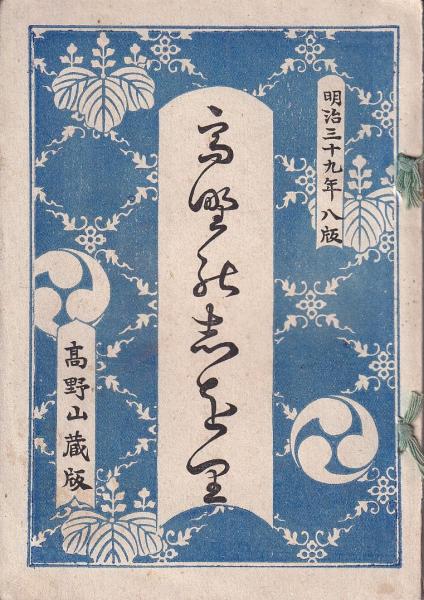 明治三十九年八版
高野能志を里
高野山蔵版